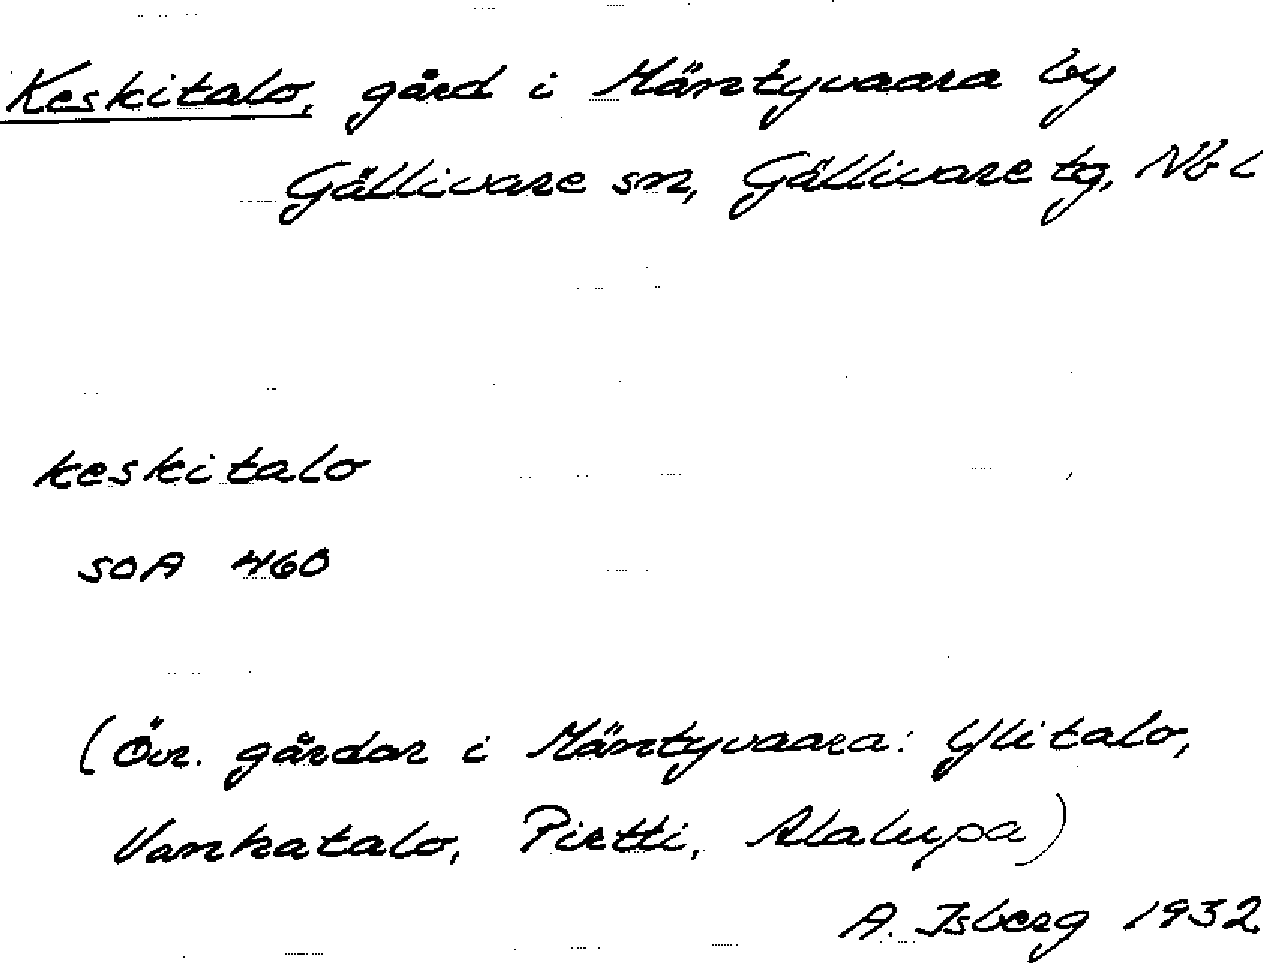 Keskitalo, gård i Mäntyvaara by
Gällivare sn, Gällivare tg, Nb l
keskitalo
SOA 460
(Övr. gårdar i Mäntyvaara: Ylitalo,
Vanhatalo, Pietti, Alalupa)
A. Isberg 1932